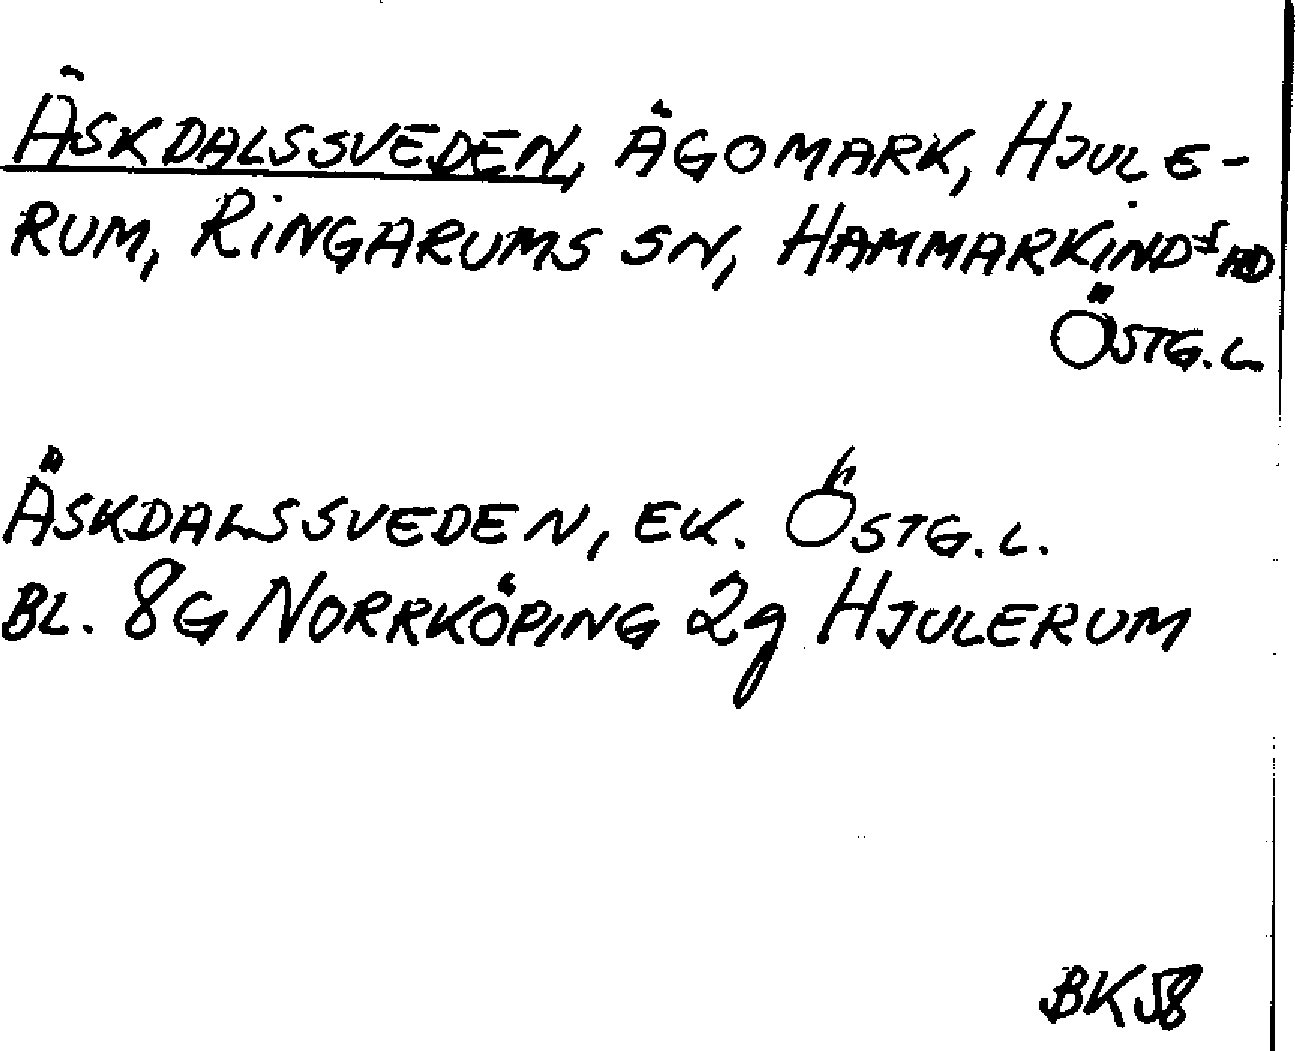 ÄSKDALSSVEDEN, ÄGOMARK, HJULE-
RUM, RINGARUMS SN, HAMMARKINDS HD
ÖSTG. L
ÄSKDALSSVEDEN, EK. ÖSTG. L.
BL. 8G NORRKÖPING 2g HJULERUM
BK58